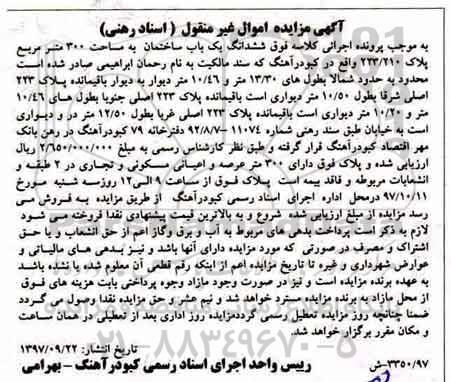 آگهی مزایده اموال غیر منقول ( اسناد رهنی)
به موجب پرونده اجرائی کلاسه فوق ششدانگ یک باب ساختمان به مساحت ۳۰۰ متر مربع
پلاک ۲۲۳/۲۱۰ واقع در کبودرآهنگ که سند مالکیت به نام رحمان ابراهیمی صادر شده است
محدود به حدود شمالا بطول های ۱۳/۳۰ متر و ۱۰/۴۶ متر دیوار به دیوار باقیمانده پلاک ۲۲۳
اصلی شرقا بطول ۱۰/۵۰ متر دیواری است باقیمانده پلاک ۲۲۳ اصلی جنوبا بطول های ۱۰/۴۶
متر و ۱۰/۲۰ متر دیواری است باقیمانده پلاک ۲۲۳ اصلی غربا بطول ۱۲/۵۰ متر در و دیواری
است به خیابان طبق سند رهنی شماره ۱۱۰۷۴ – ۹۲/۸/۷ دفترخانه ۷۹ کبودرآهنگ در رهن بانک
مهر اقتصاد کبودرآهنگ قرار گرفته و طبق نظر کارشناس رسمی به مبلغ ۲/۶۵۰/۰۰۰/۰۰۰ ریال
ارزیابی شده و پلاک فوق دارای ۳۰۰ متر عرصه و اعیانی مسکونی و تجاری در ۲ طبقه و
انشعابات مربوطه و فاقد بیمه است پلاک فوق از ساعت ۹ الی ۱۲ روز سه شنبه مورخ
۹۷/۱۰/۱۱ در محل اداره اجرای اسناد رسمی کبودرآهنگ از طریق مزایده به فروش می
رسد مزایده از مبلغ ارزیابی شده شروع و به بالاترین قیمت پیشنهادی نقدا فروخته می شود
لازم به ذکر است پرداخت بدهی های مربوط به آب و برق وگاز اعم از حق انشعاب و یا حق
اشتراک و مصرف در صورتی که مورد مزایده دارای آنها باشد و نیز بدهی های مالیاتی و
عوارض شهرداری و غیره تا تاریخ مزایده اعم از اینکه رقم قطعی آن معلوم شده یا نشده باشد
به عهده برنده مزایده است و نیز در صورت وجود مازاد وجوه پرداختی بابت هزینه های فوق
از محل مازاد به برنده مزایده مسترد خواهد شد و نیم عشر و حق مزایده نقدا وصول می گردد
ضمنا چنانچه روز مزایده تعطیل رسمی گردد مزایده روز اداری بعد از تعطیلی در همان ساعت
و مکان مقرر برگزار خواهد شد.
تاریخ انتشار: ۱۳۹۷/۰۹/۲۲
۳۳۵۰/۹۷-ش رییس واحد اجرای اسناد رسمی کبودرآهنگ - بهرامی
۰۲۱-۸۸۳۴۹۶۷۰-۵